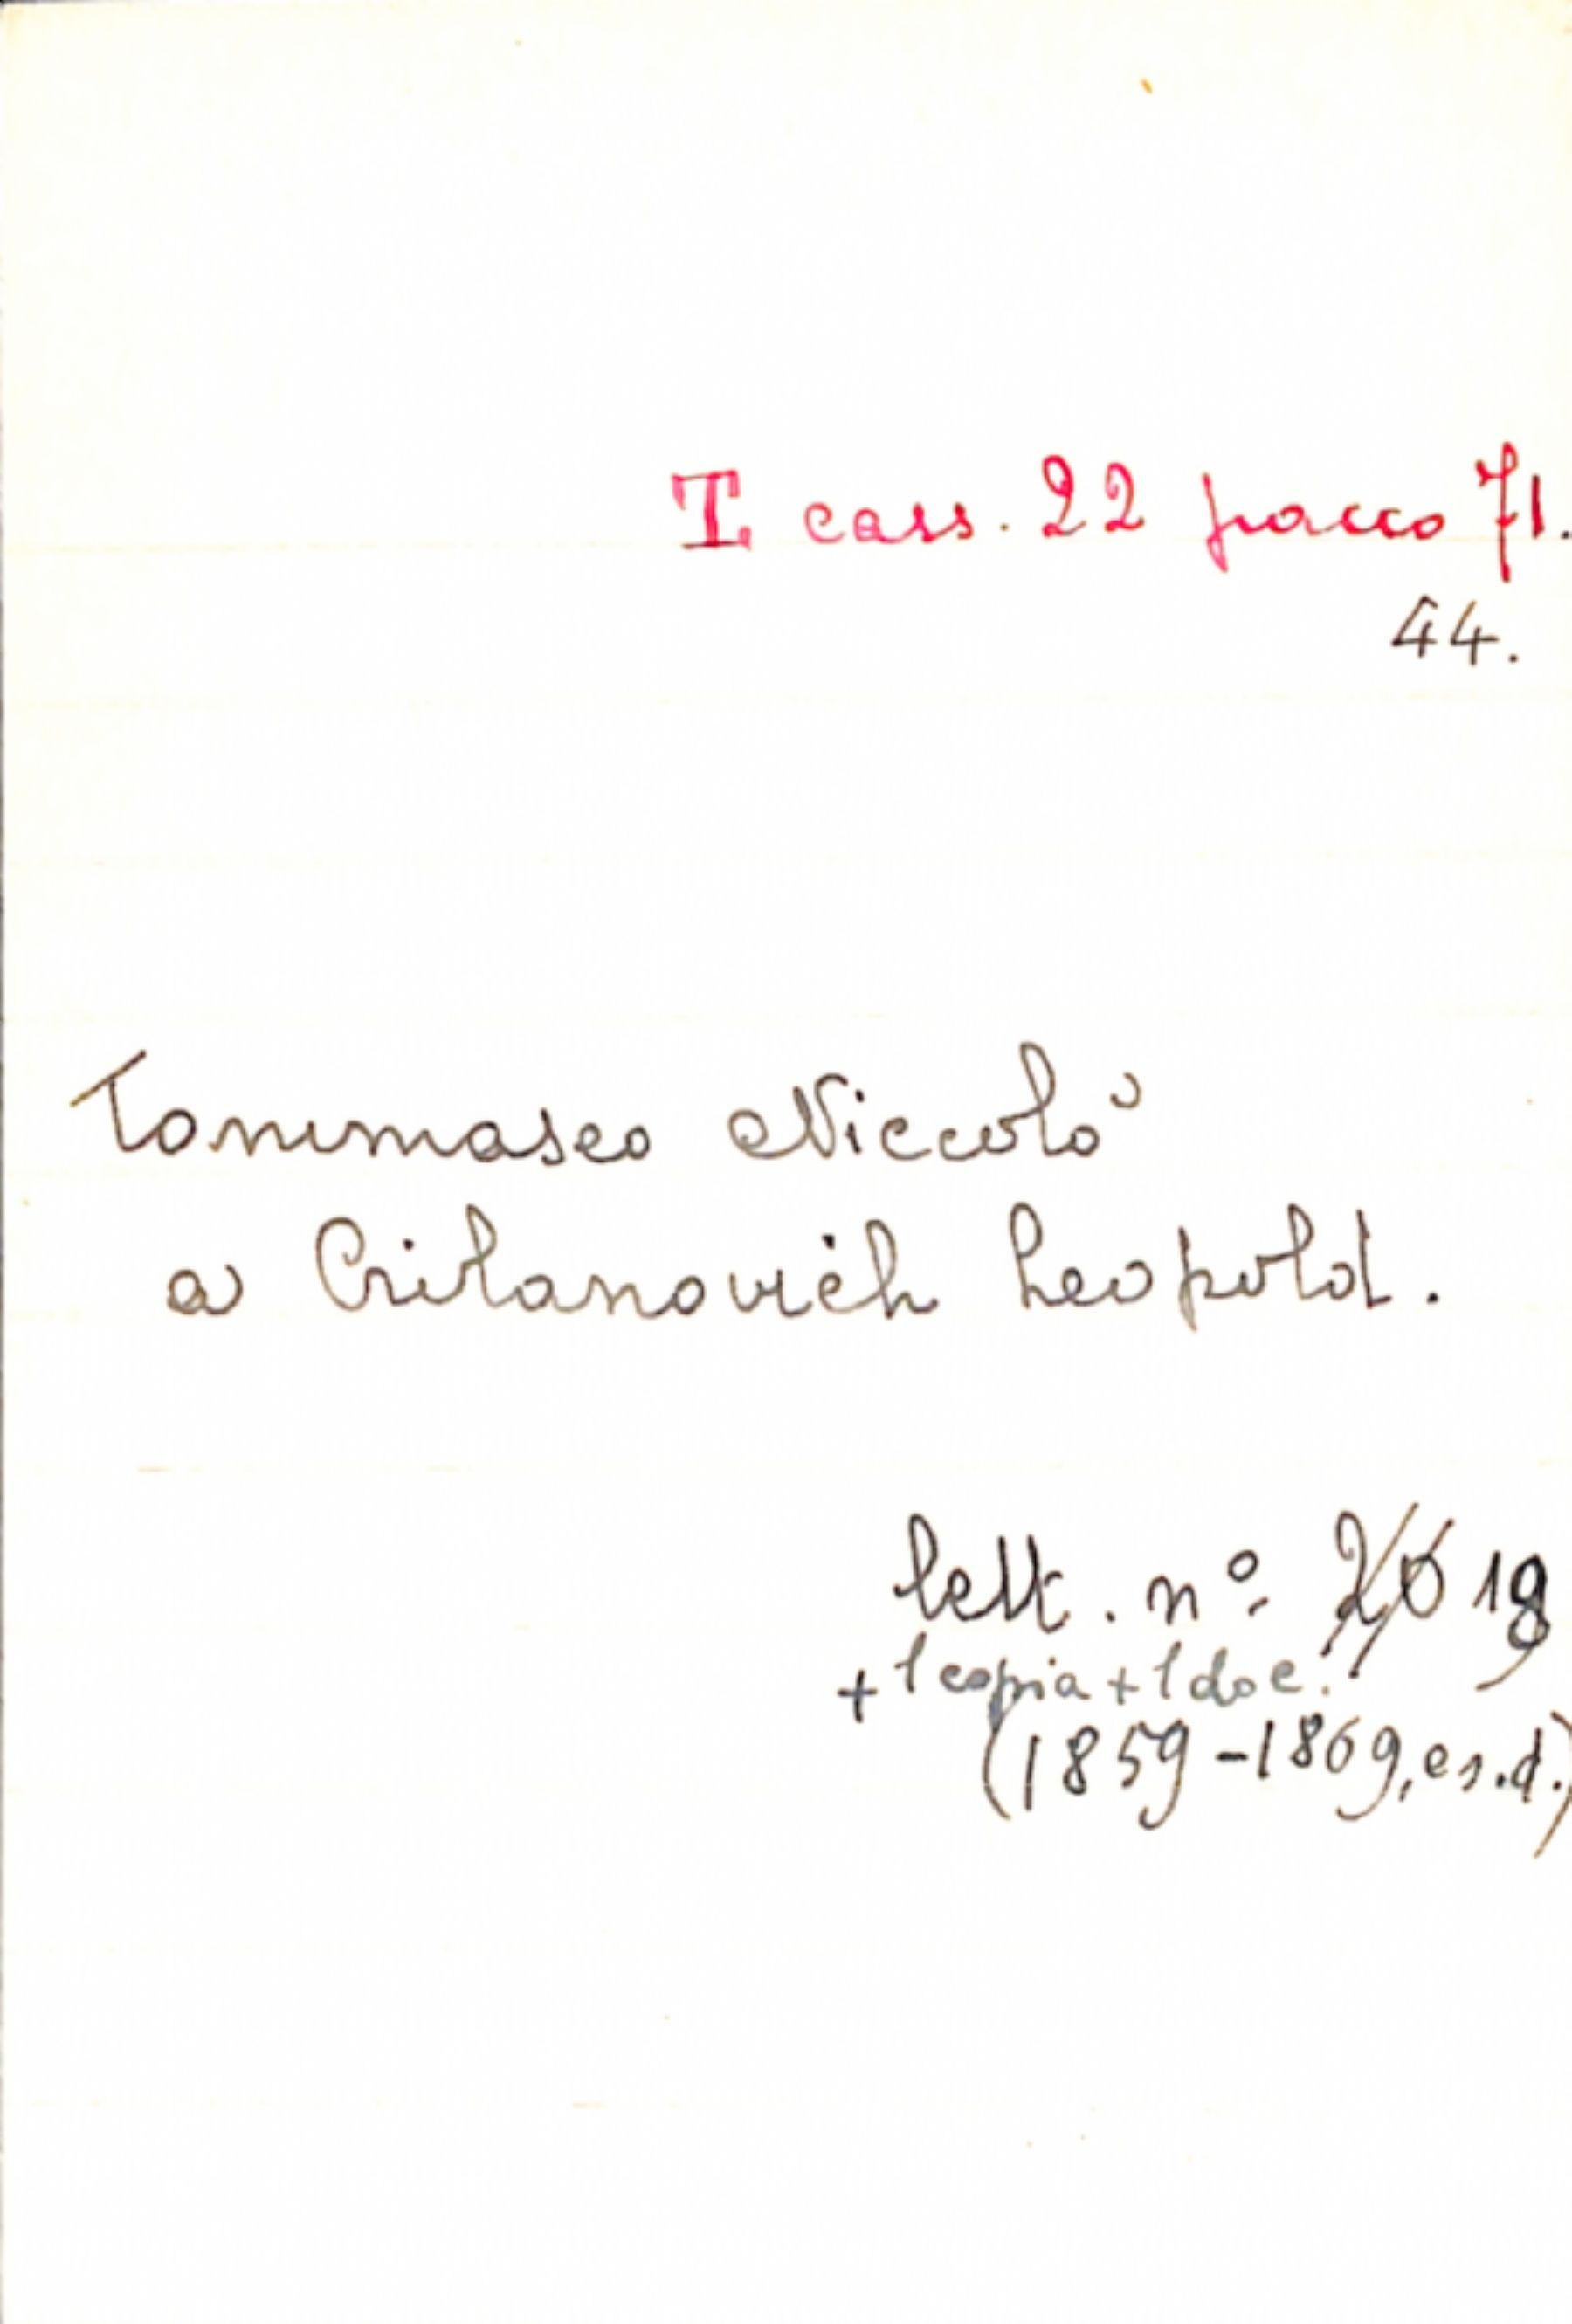 T cass. 22 pacco 71.
44.
Tommaseo Niccolò
a Crilanovich Leopold.
lett. nº 20 19
+ 1 copia + 1 doc.
(1859-1869, e s.d.)